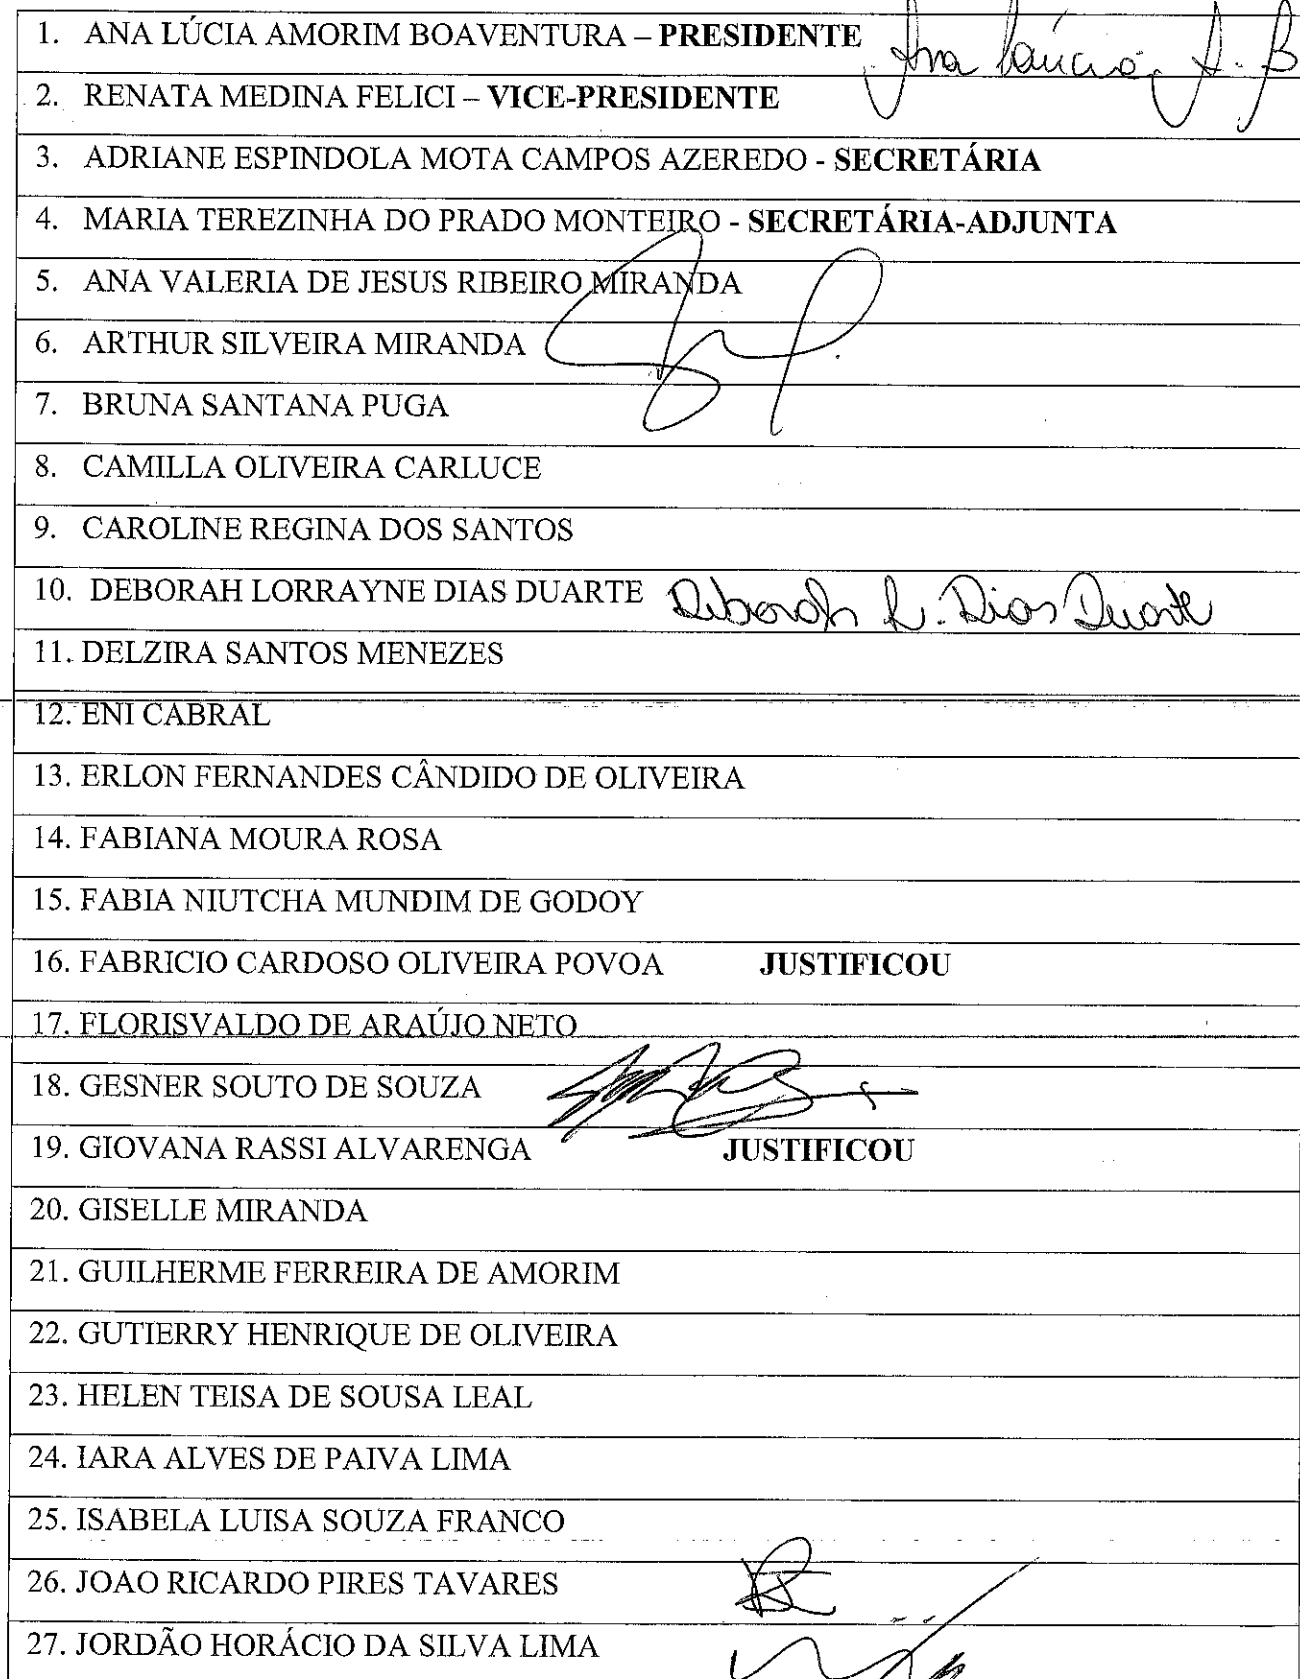 1. ANA LÚCIA AMORIM BOAVENTURA – PRESIDENTE Ana Lúcia A. B
2. RENATA MEDINA FELICI – VICE-PRESIDENTE
3. ADRIANE ESPINDOLA MOTA CAMPOS AZEREDO - SECRETÁRIA
4. MARIA TEREZINHA DO PRADO MONTEIRO - SECRETÁRIA-ADJUNTA
5. ANA VALERIA DE JESUS RIBEIRO MIRANDA
6. ARTHUR SILVEIRA MIRANDA
7. BRUNA SANTANA PUGA
8. CAMILLA OLIVEIRA CARLUCE
9. CAROLINE REGINA DOS SANTOS
10. DEBORAH LORRAYNE DIAS DUARTE Deborah L. Dias Duarte
11. DELZIRA SANTOS MENEZES
12. ENI CABRAL
13. ERLON FERNANDES CÂNDIDO DE OLIVEIRA
14. FABIANA MOURA ROSA
15. FABIA NIUTCHA MUNDIM DE GODOY
16. FABRICIO CARDOSO OLIVEIRA POVOA JUSTIFICOU
17. FLORISVALDO DE ARAÚJO NETO
18. GESNER SOUTO DE SOUZA
19. GIOVANA RASSI ALVARENGA JUSTIFICOU
20. GISELLE MIRANDA
21. GUILHERME FERREIRA DE AMORIM
22. GUTIERRY HENRIQUE DE OLIVEIRA
23. HELEN TEISA DE SOUSA LEAL
24. IARA ALVES DE PAIVA LIMA
25. ISABELA LUISA SOUZA FRANCO
26. JOAO RICARDO PIRES TAVARES
27. JORDÃO HORÁCIO DA SILVA LIMA